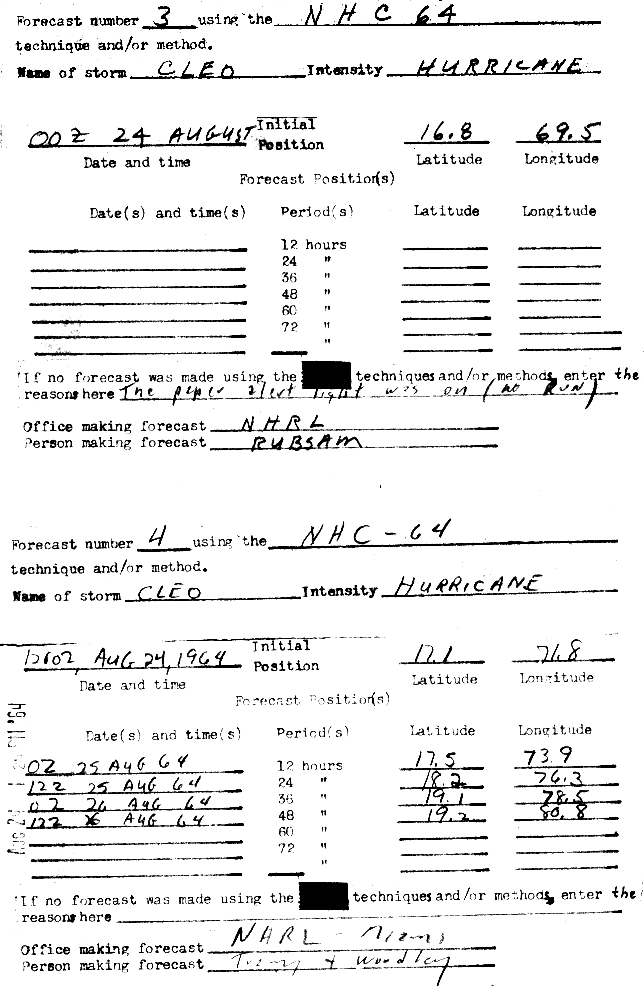 Forecast number 3 using the NHC 64
technique and/or method.
Name of storm CLEO Intensity HURRICANE
00Z 24 AUGUST Initial Position 16.8 69.5
Date and time Latitude Longitude
Forecast Position(s)
Date(s) and time(s) Period(s) Latitude Longitude
12 hours
24 "
36 "
48 "
60 "
72 "
"
If no forecast was made using the techniques and/or methods, enter the
reasons here The paper alert light was on (no RUN)
Office making forecast NHRL
Person making forecast RUBSAM
Forecast number 4 using the NHC-64
technique and/or method.
Name of storm CLEO Intensity HURRICANE
AUG 24, 1964 Initial Position 17.1 71.8
Date and time Latitude Longitude
Forecast Position(s)
Date(s) and time(s) Period(s) Latitude Longitude
0Z 25 AUG 64 12 hours 17.5 73.9
12Z 25 AUG 64 24 " 18.2 76.3
0Z 26 AUG 64 36 " 19.1 78.5
12Z 26 AUG 64 48 " 19.2 80.8
60 "
72 "
"
If no forecast was made using the techniques and/or methods, enter the
reasons here
Office making forecast NHRL - Miami
Person making forecast & Woodley